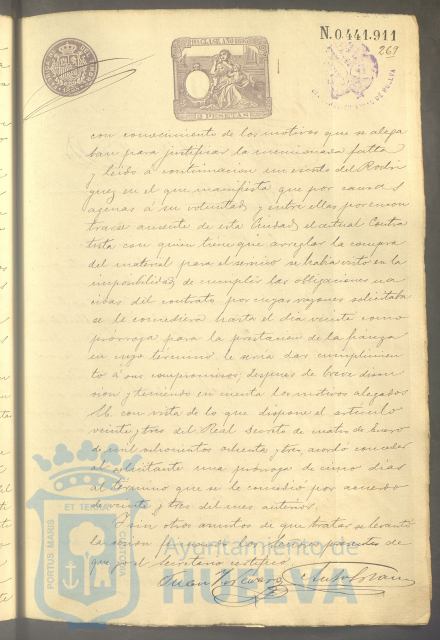 N. 0.441.911
269
3 PESETAS
con conocimiento de los motivos que se alega
ban para justificar la mencionada falta
y leido á continuacion un escrito del Rodri
guez en el que manifiesta que por causas
agenas á su voluntad y entre ellas por encon
trarse ausente de esta Ciudad el actual Contra
tista con quien tiene que arreglar la compra
del material para el servicio se habia visto en la
imposibilidad de cumplir las obligaciones na
cidas del contrato por cuyas razones solicitaba
se le concediera hasta el dia veinte como
prorroga para la prestacion de la fianza
en cuyo termino le seria dar cumplimien
to á sus compromisos; despues de breve discu
sion y teniendo en cuenta los motivos alegados
con vista de lo que dispone el articulo
veinte y tres del Real Decreto de cuatro de Enero
de mil ochocientos ochenta y tres, acordó conceder
al solicitante una próroga de cinco dias
al término que se le concedió por acuerdo
de veinte y tres del mes anterior.
Y sin otros asuntos de que tratar se levantó
la sesion firmando los señores presentes de
que yo el Secretario certifico
Juan
ET TERRAE
PORTUS MARIS
CUSTODIA
Ayuntamiento de
HUELVA